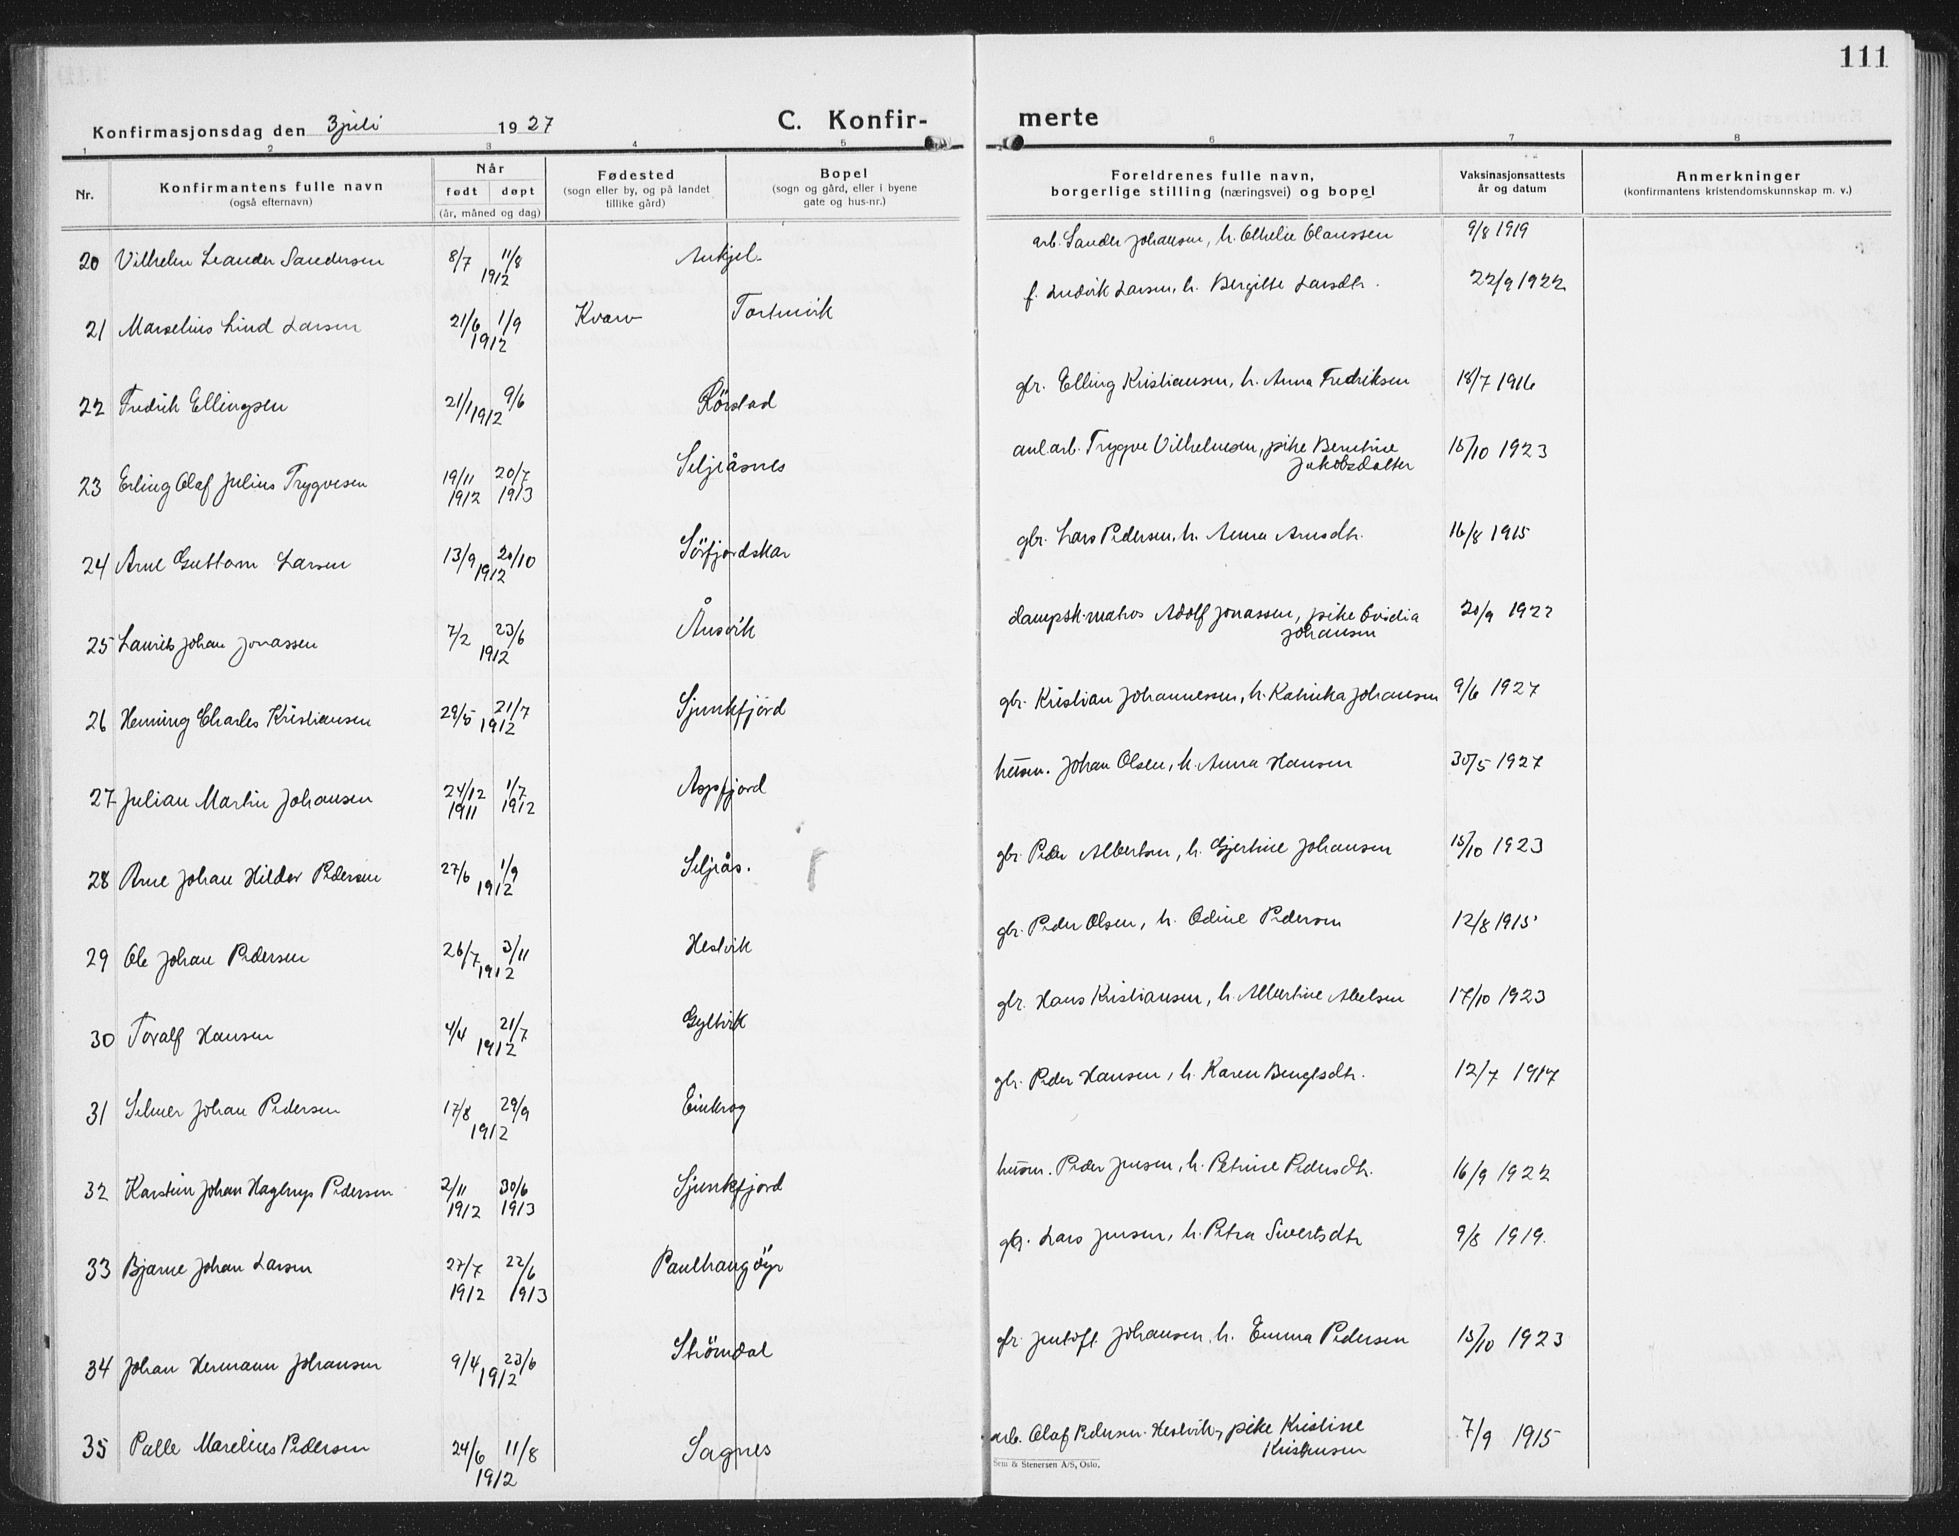 111
Konfirmasjonsdag den 3 juli 1927 C. Konfir- merte
1 2 3 4 5 6 7 8
Nr. Konfirmantens fulle navn (også efternavn) Når født døpt (år, måned og dag) Fødested (sogn eller by, og på landet tillike gård) Bopel (sogn og gård, eller i byene gate og hus-nr.) Foreldrenes fulle navn, borgerlige stilling (næringsvei) og bopel Vaksinasjonsattests år og datum Anmerkninger (konfirmantens kristendomskunnskap m. v.)
20 Vilhelm Leander Sandersen 8/7 11/8 1912 Ankjel. arb. Sander Johansen, h. Othelie Claussen 9/8 1919
21 Marselius Lind Larsen 21/6 1/9 1912 Kvarv Tortenvik f. Ludvik Larsen, h. Bergitte Larsdtr. 22/9 1922
22 Fredrik Ellingsen 21/1 9/6 1912 Rörstad gbr. Elling Kristiansen, h. Anna Fredriksen 18/7 1916
23 Erling Olaf Julius Trygvesen 19/11 1912 20/7 1913 Seljeåsnes anl.arb. Trygve Vilhelmsen, pike Berntine Jakobsdatter 15/10 1923
24 Arne Guttorm Larsen 13/9 20/10 1912 Sörfjordskar gbr. Lars Pedersen, h. Anna Arnsdtr. 16/8 1915
25 Laurits Johan Jonassen 7/2 23/6 1912 Ånsvik dampsk.matros Adolf Jonassen, pike Ovidia Johansen 20/9 1922
26 Henning Charles Kristiansen 29/5 21/7 1912 Sjunkfjord gbr. Kristian Johannesen, h. Katinka Johansen 9/6 1927
27 Julian Martin Johansen 24/12 1911 1/7 1912 Aspfjord husm. Johan Olsen, h. Anna Hansen 30/5 1927
28 Arne Johan Hildor Pedersen 27/6 1/9 1912 Seljeås. gbr. Peder Albertsen, h. Gjertine Johansen 15/10 1923
29 Ole Johan Pedersen 26/7 3/11 1912 Hestvik gbr. Peder Olsen, h. Odine Pedersen 12/8 1915
30 Toralf Hansen 4/4 21/7 1912 Gyltvik gbr. Hans Kristiansen, h. Albertine Abelsen 17/10 1923
31 Selmer Johan Pedersen 17/8 29/9 1912 Einkrog gbr. Peder Hansen, h. Karen Bengtsdtr. 12/7 1917
32 Karstein Johan Hagerup Pedersen 2/11 1912 30/6 1913 Sjunkfjord husm. Peder Jensen, h. Petrine Pedersdtr. 16/9 1922
33 Bjarne Johan Larsen 27/7 1912 22/6 1913 Paulhangöyr gbr. Lars Jensen, h. Petra Sivertsdtr 9/8 1919.
34 Johan Hermann Johansen 9/4 23/6 1912 Strömdal gbr Jentoft Johansen, h. Emma Pedersen 15/10 1923
35 Palle Marelius Pedersen 24/6 11/8 1912 Sagnes arb. Olaf Pedersen Hestvik, pike Kristine Kristensen 7/9 1915
Sem & Stenersen A/S, Oslo.